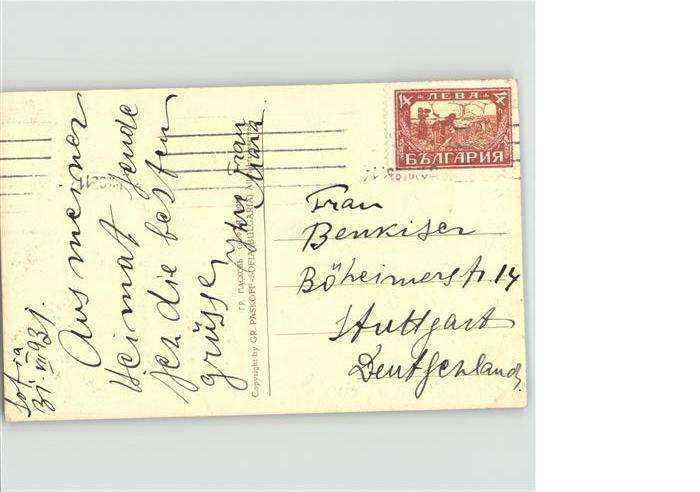 Sofia
31.VII.931.
Aus meiner
Heimat sende
ich die besten
grüsse
Ihre Frau
Copyright by GR. PASKOFF-SOFIA (BULGARIA)
ГР. ПАСКОВЪ
4 ЛЕВА 4
БЪЛГАРИЯ
Frau
Benkiser
Böheimerstr. 14
Stuttgart
Deutschland,